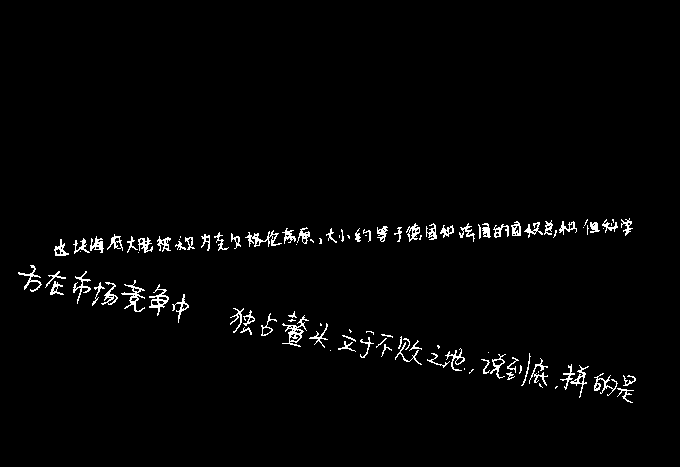 这块海底大陆被称为克尔格伦高原,大小约等于德国和法国的面积总和但科学
方在市场竞争中 独占鳌头.立于不败之地,说到底,拼的是